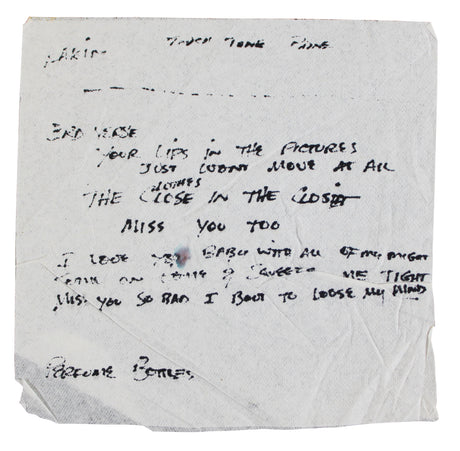 TOUCH TONE PHONE
VERSE
YOUR LIPS IN THE PICTURES
JUST WONT MOVE AT ALL
CLOTHES
THE CLOSE IN THE CLOSIT
MISS YOU TOO
I LOVE YOU BABY WITH ALL OF MY MIGHT
COME ON HOME & SQUEEZE ME TIGHT
MISS YOU SO BAD I BOUT TO LOOSE MY MIND
PERFUME BOTTLES